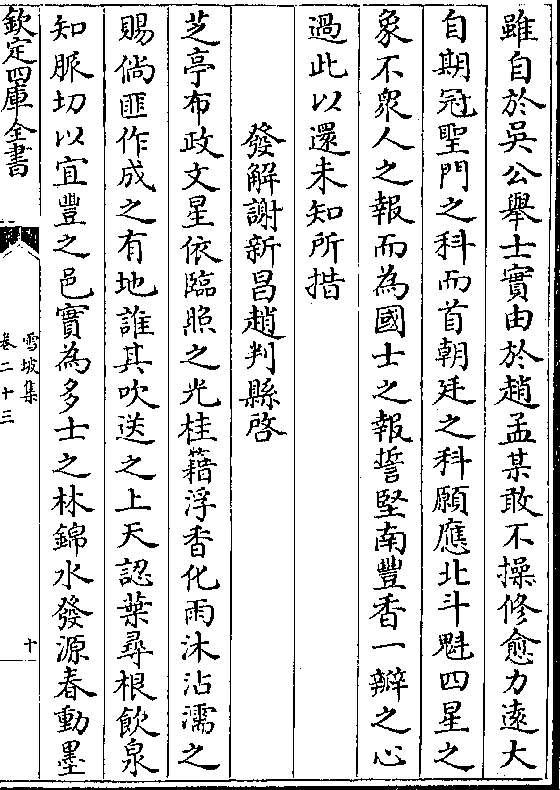 雖自於吳公舉士實由於趙孟某敢不操修愈力遠大
自期冠聖門之科而首朝廷之科願應北斗魁四星之
象不衆人之報而為國士之報誓堅南豐香一瓣之心
過此以還未知所措
發解謝新昌趙判縣啓
芝亭布政文星依臨照之光桂籍浮香化雨沐沾濡之
賜倘匪作成之有地誰其吹送之上天認葉尋根飲泉
知脈切以宜豐之邑實為多士之林錦水發源春動墨
欽定四庫全書
雪坡集
卷二十三
十